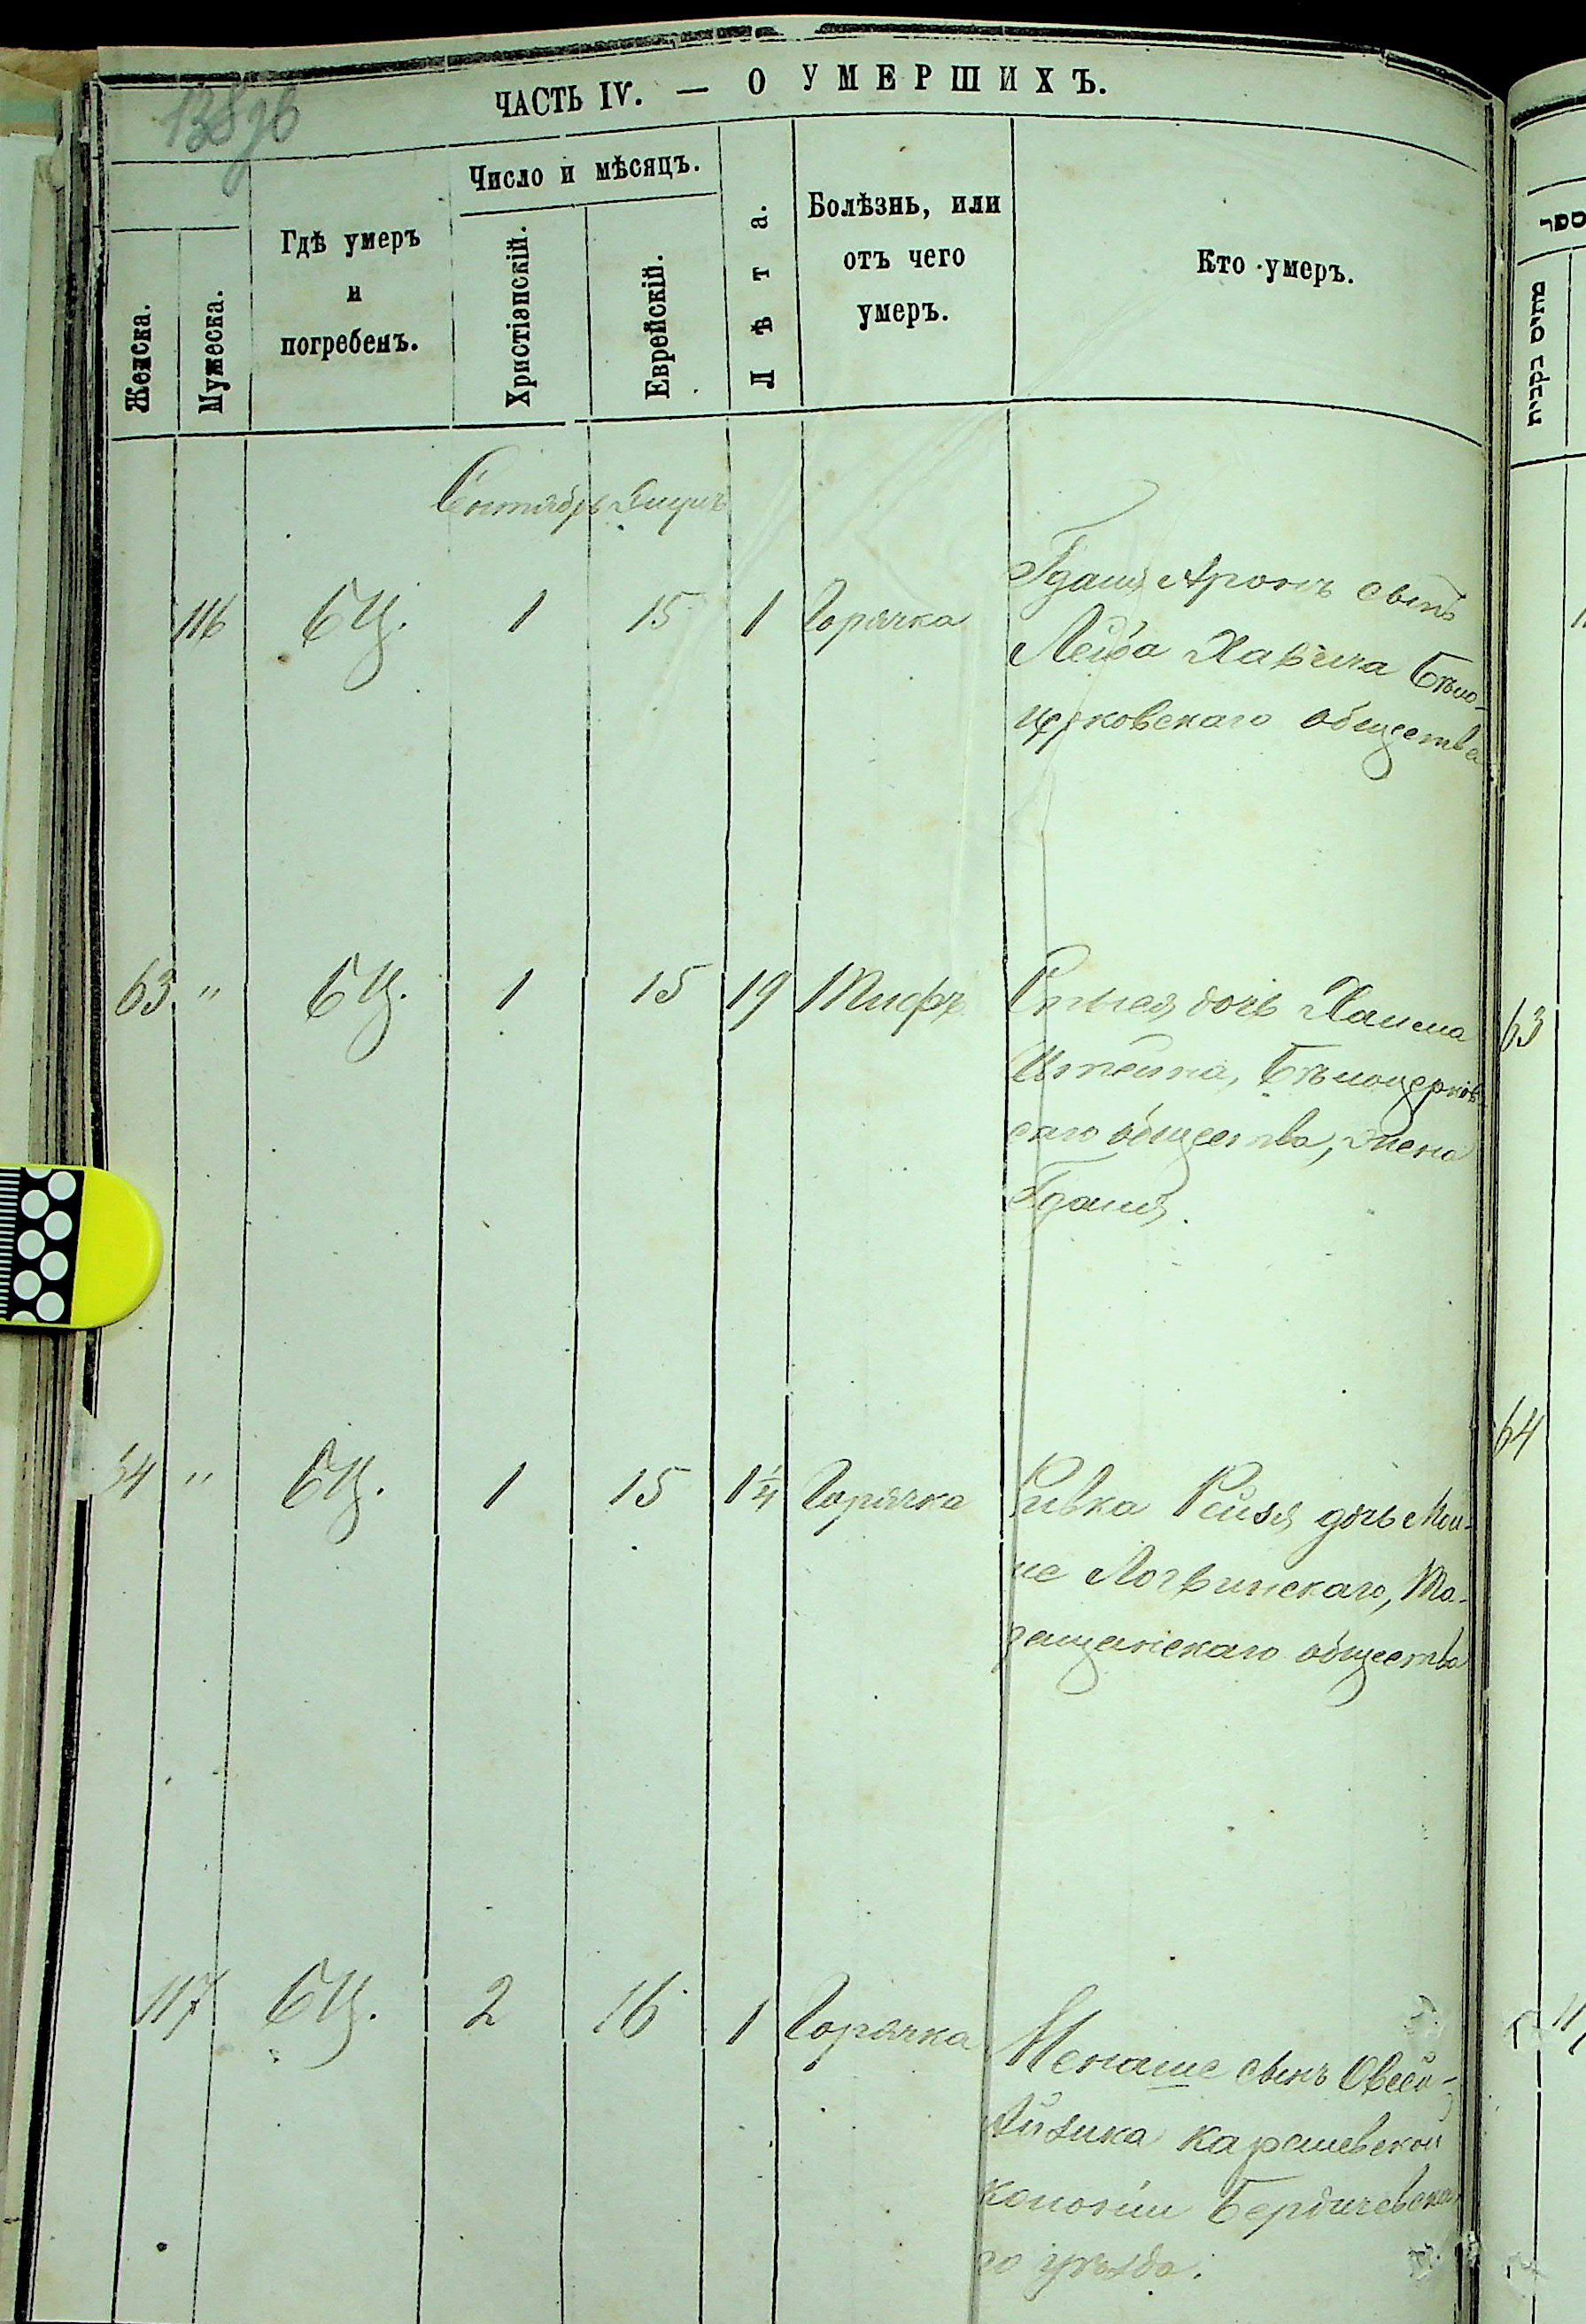 138 об
ЧАСТЬ IV. — О УМЕРШИХЪ.
Женска.
Мужеска.
Гдѣ умеръ
и
погребенъ.
Число и мѣсяцъ.
Христіанскій.
Еврейскій.
Лѣта.
Болѣзнь, или
отъ чего
умеръ.
Кто умеръ.
מתים נקבית
Сентябрь
116 БЦ. 1 15 1 Горячка
Аронъ сынъ
Лейба Хавина Бѣло-
церковскаго общества
63 " БЦ. 1 15 19 Тифъ
дочь Хаима
Штейна, Бѣлоцерков-
скаго общества, жена
64 " БЦ. 1 15 1¼ Горячка
Ривка Рейзя дочь Мой-
ше Логвинскаго, Та-
ращанскаго общества
117 БЦ. 2 16 1 Горячка
Менаше сынъ Овсей-
Айзика
колоніи Бердичевска-
го уѣзда.
63
64